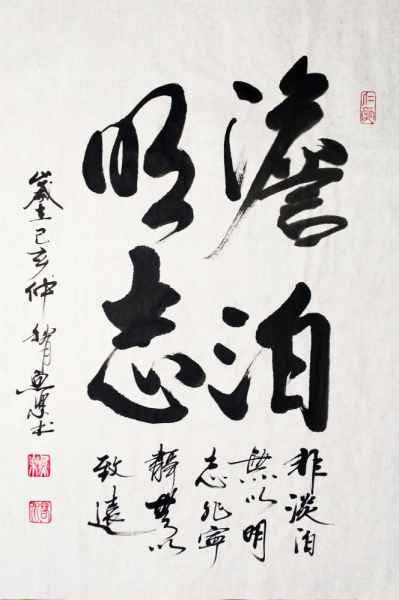 澹泊
明志
非淡泊
無以明
志非寧
靜無以
致遠
歲在己亥仲秋月